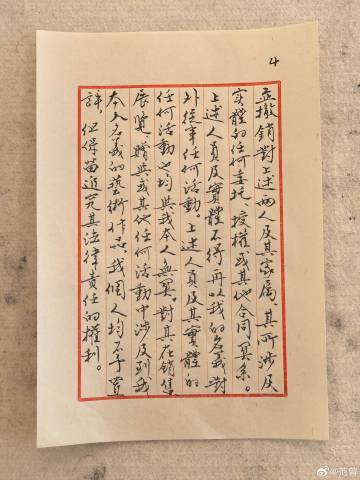 4
並撤銷對上述兩人及其家屬、其所涉及
實體的任何委托、授權或其他合同関系。
上述人員及實體不得再以我的名義對
外從事任何活動。上述人員及其實體的
任何活動均與我本人無関。對其在銷售
展覽、贈與或其他任何活動中涉及到我
本人名義的藝術作品，我個人均不予置
評，但保留追究其法律責任的權利。
@范曾